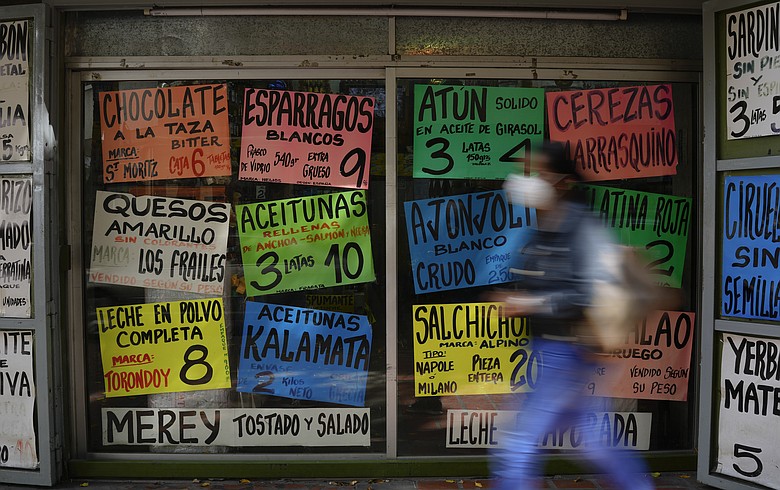 CHOCOLATE
A LA TAZA
BITTER
MARCA
ST MORITZ
CAJA 6
ESPARRAGOS
BLANCOS
FRASCO
DE VIDRIO
540gr
EXTRA
GRUESO
9
QUESOS
AMARILLO
SIN COLORANTES
MARCA:
LOS FRAILES
VENDIDO SEGÚN SU PESO
ACEITUNAS
RELLENAS
DE ANCHOA-SALMON-NUEZ
3 LATAS 10
ESPUMANTE
LECHE EN POLVO
COMPLETA
MARCA:
TORONDOY
8
ACEITUNAS
KALAMATA
2 KILOS
NETO
MEREY TOSTADO Y SALADO
ATÚN SOLIDO
EN ACEITE DE GIRASOL
3 LATAS 4
CEREZAS
MARRASQUINO
AJONJOLI
BLANCO
CRUDO
LATINA ROJA
2
SALCHICHON
MARCA: ALPINO
TIPO:
NAPOLE
O
MILANO
PIEZA
ENTERA
20
VENDIDO SEGÚN
SU PESO
LECHE
SARDIN
SIN PIE
Y SIN ESP
3 LATAS 5
CIRUE
SIN
SEMILL
YERB
MATE
5